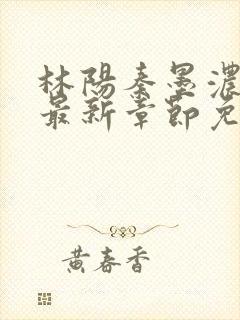 林陽秦墨濃
最新章節免
黃春香